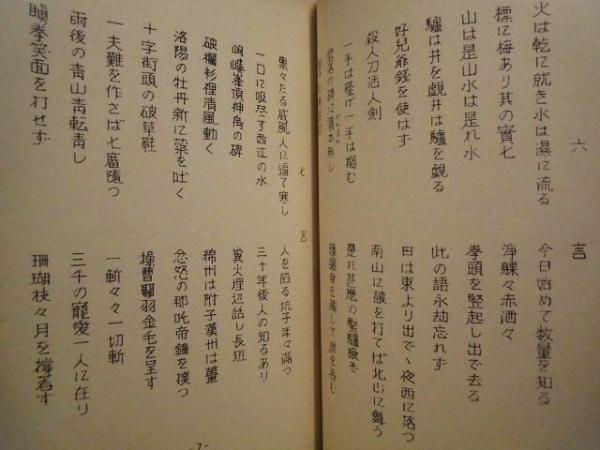 六言
火は乾に就き水は濕に流る
今日始めて数量を知る
標に梅あり其の實七
淨躶々赤洒々
山は是山水は是れ水
拳頭を竪起し出で去る
驢は井を覷井は驢を覷る
此の語永劫忘れず
好兒爺錢を使はず
日は東より出で夜西に落つ
殺人刀活人劍
南山に皷を打てば北山に舞う
一手は擡げ一手は搦む
是れ甚麼の繋驢橛ぞ
七言
凛々たる威風人に逼て寒し
人を陷る坑子年々滿つ
一口に吸尽す西江の水
三十年後人の知るあり
岣嶁峯頂神禹の碑
糞火堆辺話し長短
破襴衫裡清風動く
綿州は附子漢州は薑
洛陽の牡丹新に蘂を吐く
忿怒の那吒帝鐘を撲つ
十字街頭の破草鞋
羽金毛を呈す
一夫難を作さば七廟隳つ
一斬々々一切斬
雨後の青山青転青し
三千の寵愛一人に在り
瞋拳笑面を打せず
珊瑚枝々月を撐着す
-7-